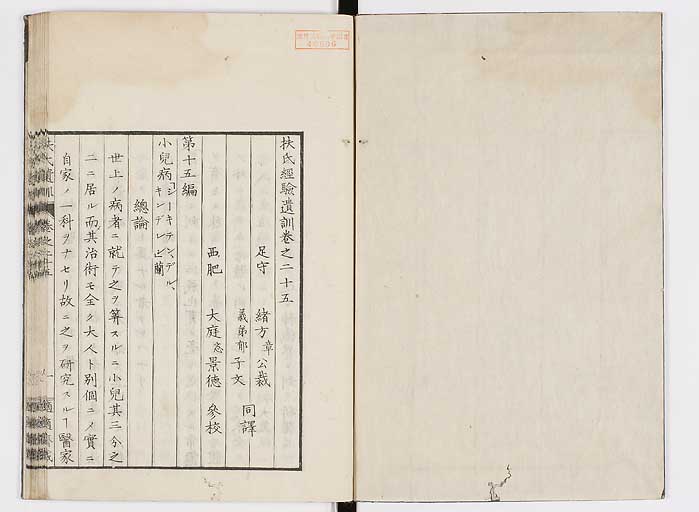 扶氏經驗遺訓卷之二十五
足守 緒方章公裁
義弟郁子文 同譯
西肥 大庭忞景德 參校
第十五編
小兒病「シーキテン、デル、キンデレン」蘭
總論
世上ノ病者ニ就テ之ヲ算スルニ小兒其三分之
二ニ居ル而其治術モ全ク大人ト別個ニメ實ニ
自家ノ一科ヲナセリ故ニ之ヲ研究スルヿ醫家
扶氏遺訓 卷之二十五